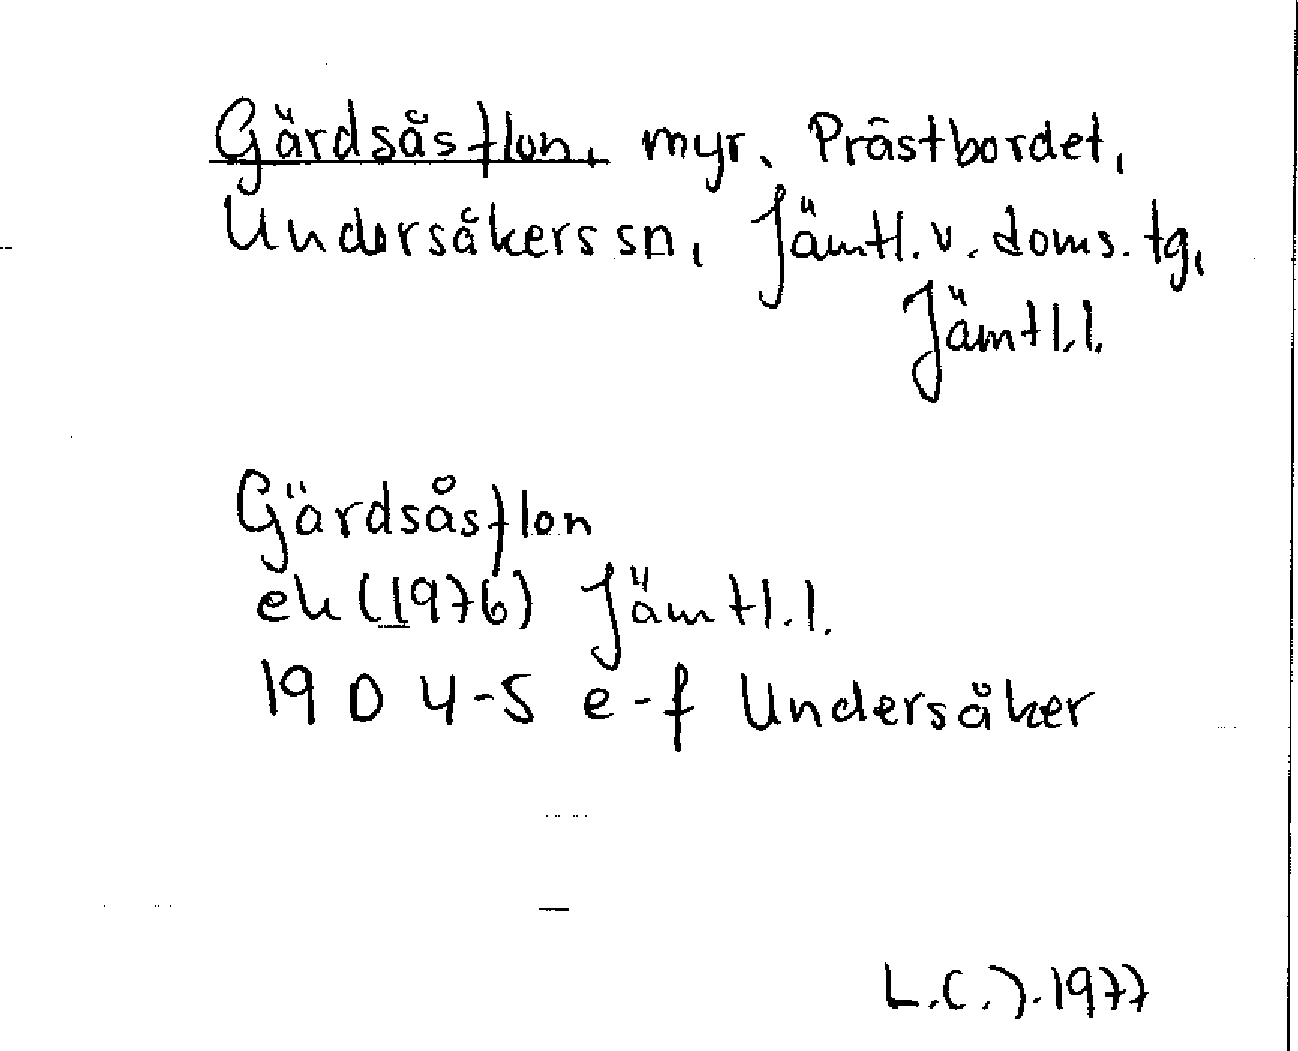 Gärdsåsflon, myr, Prästbordet,
Undersåkers sn, Jämtl. v. doms. tg,
Jämtl. l.
Gärdsåsflon
ek (1976) Jämtl. l.
19 D 4-5 e-f Undersåker
L.C.J. 1977